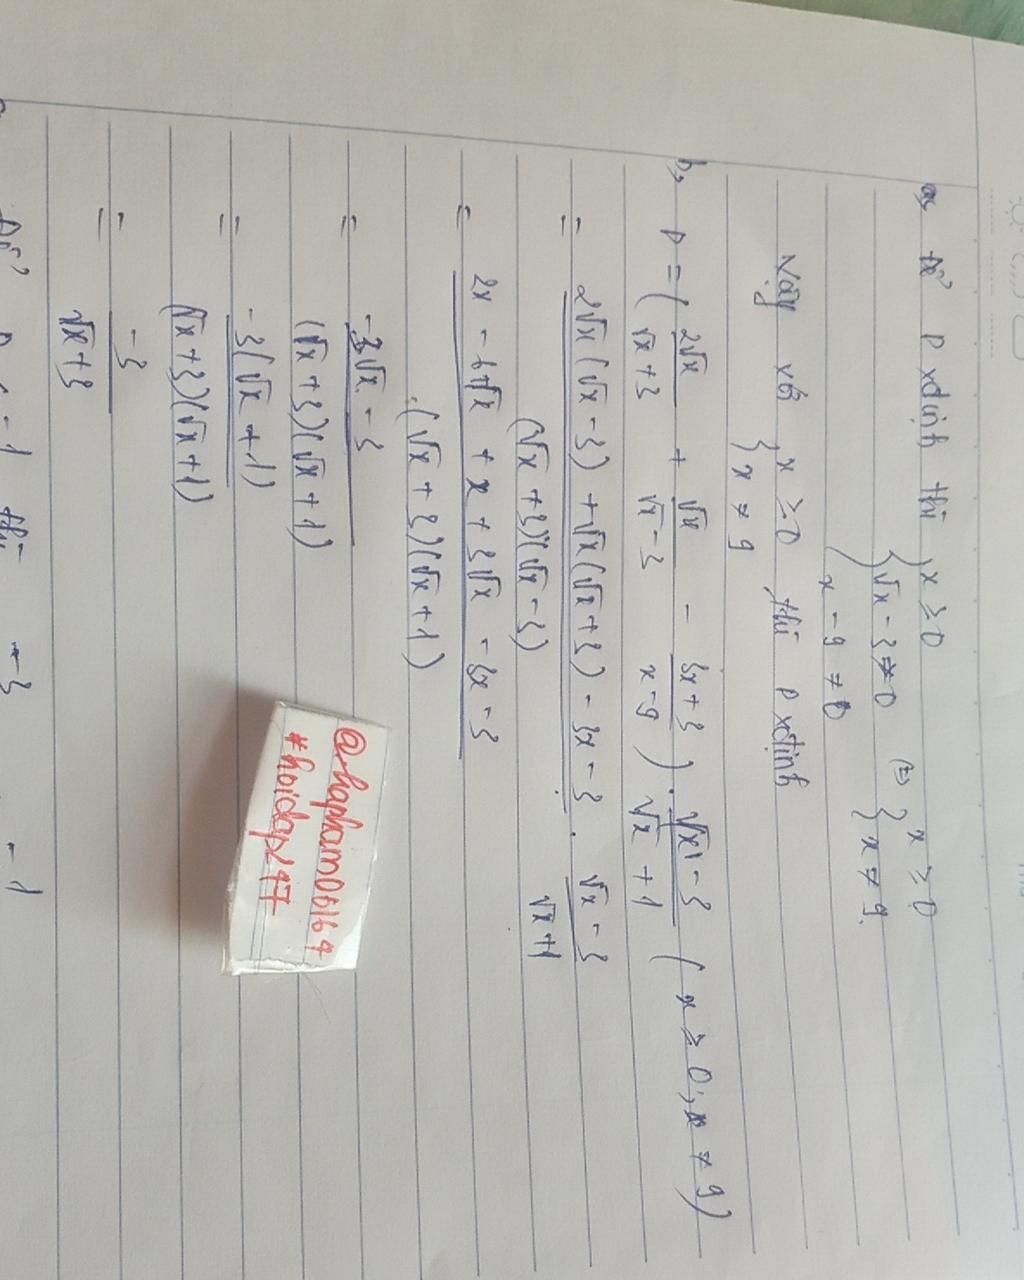 a, Để P xđịnh thì { x ≥ 0
√x - 3 ≠ 0 (=) { x ≥ 0
x - 9 ≠ 0 x ≠ 9
Vậy với { x ≥ 0 thì P xđịnh
x ≠ 9
b, P = ( 2√x / √x + 3 + √x / √x - 3 - 3x + 3 / x - 9 ) . √x - 3 / √x + 1 ( x ≥ 0 ; x ≠ 9 )
= 2√x (√x - 3) + √x (√x + 3) - 3x - 3 / (√x + 3)(√x - 3) . √x - 3 / √x + 1
= 2x - 6√x + x + 3√x - 3x - 3 / (√x + 3)(√x + 1)
= -3√x - 3 / (√x + 3)(√x + 1)
= -3(√x + 1) / (√x + 3)(√x + 1)
= -3 / √x + 3
Để P < -1 thì -3 -1
@hapham06164
#hoidap247